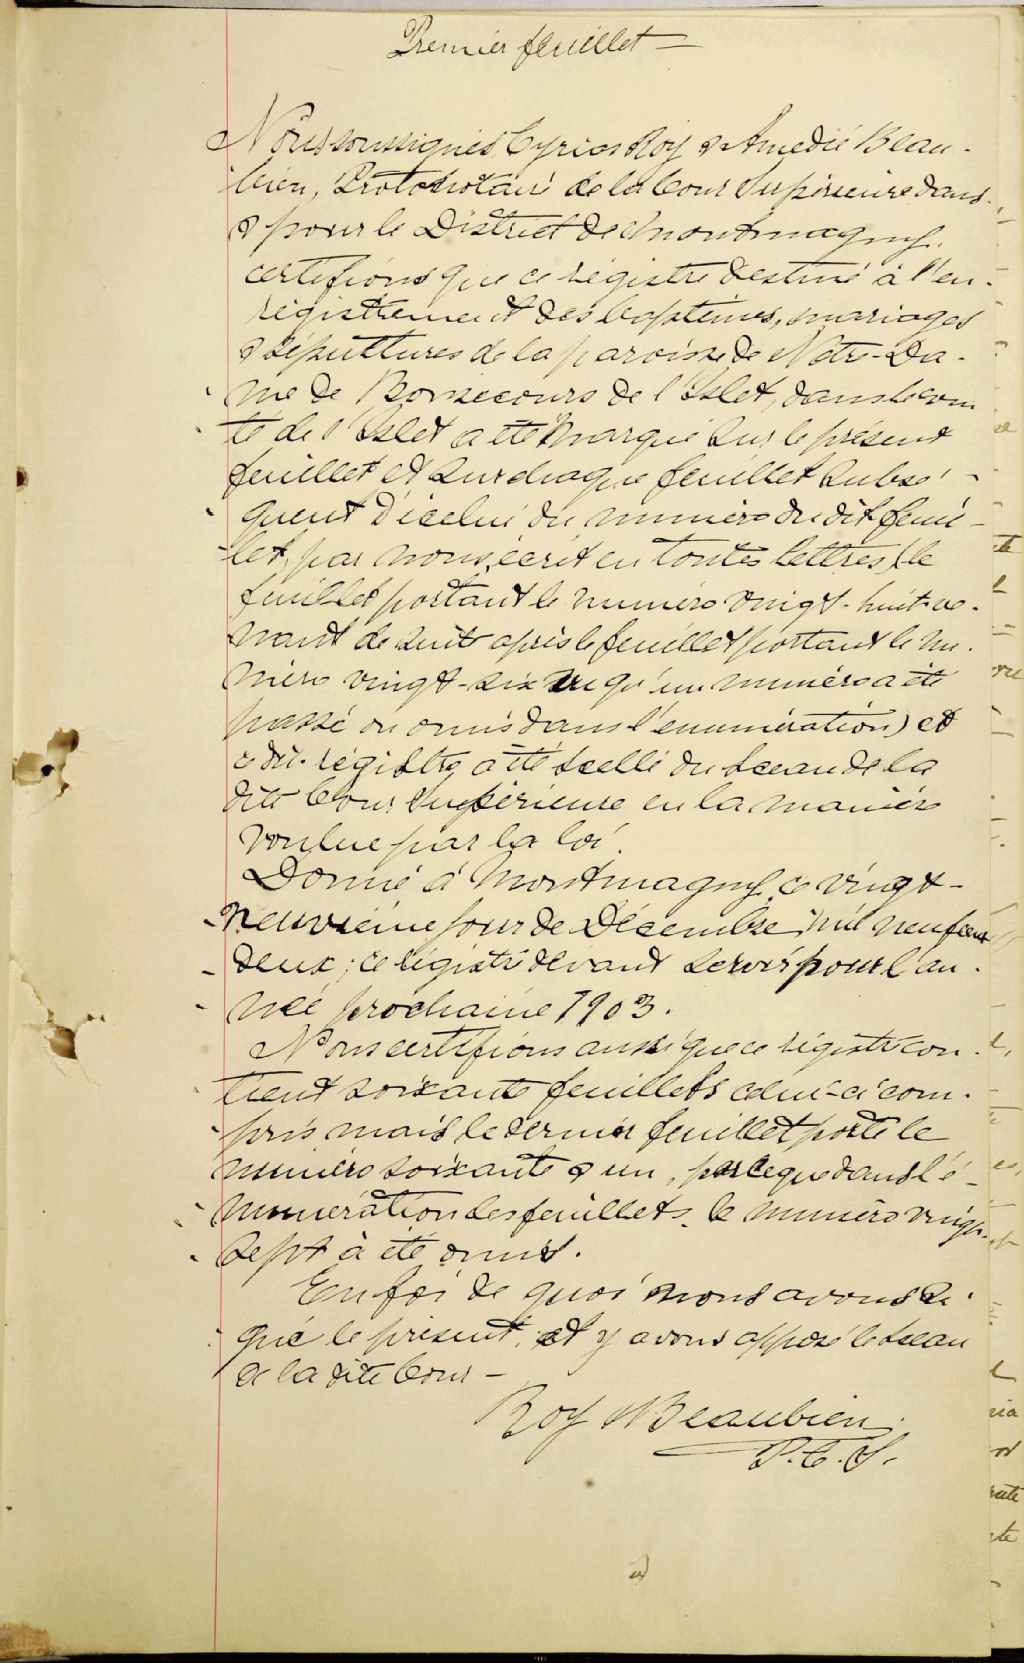 Premier feuillet —
Nous soussignés, Cyrias Roy & Amédée Beau-
bien, Protonotaire de la Cour Supérieure dans
& pour le District de Montmagny,
certifions que ce régistre destiné à l'en-
régistrement des baptêmes, mariages
& sépultures de la paroisse de Notre-Da-
me de Bonsecours de l'Islet, dans le com
té de l'Islet a été marqué sur le présent
feuillet et sur chaque feuillet subsé-
quent d'icelui du numéro du dit feuil-
let, par nous écrit en toutes lettres (le
feuillet portant le numéro vingt-huit ve-
nant de suite après le feuillet portant le nu-
méro vingt-six vu qu'un numéro a été
passé ou omis dans l'énumération) et
ce dit régistre a été scellé du sceau de la
dite Cour Supérieure en la manière
voulue par la loi.
Donné à Montmagny, ce vingt-
neuvième jour de Décembre mil neuf cent
deux; ce régistre devant servir pour l'an-
née prochaine 1903.
Nous certifions aussi que ce régistre con-
tient soixante feuillets celui-ci com-
pris mais le dernier feuillet porte le
numéro soixante & un, parceque dans l'é-
numération des feuillets, le numéro vingt-
sept à été omis.
En foi de quoi nous avons si-
gné le présent, et y avons apposé le sceau
de la dite Cour —
Roy & Beaubien
P.C.S.